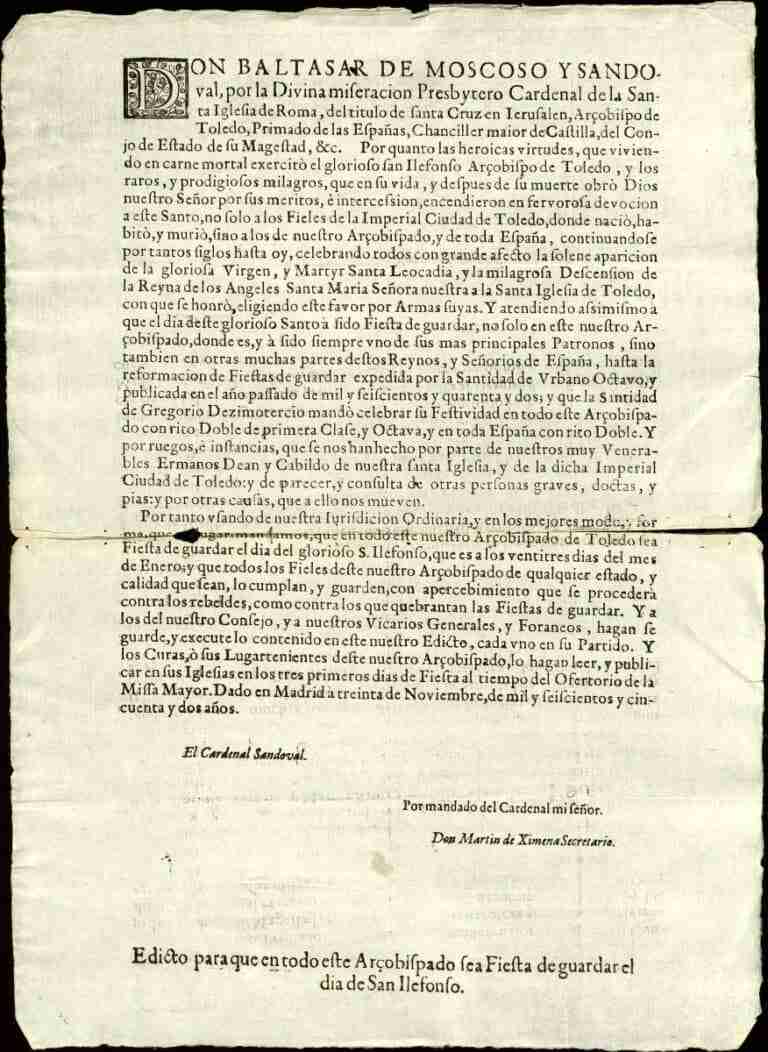 DON BALTASAR DE MOSCOSO Y SANDO-
val, por la Divina miseracion Presbytero Cardenal de la San-
ta Iglesia de Roma, del titulo de santa Cruz en Ierusalen, Arçobispo de
Toledo, Primado de las Españas, Chanciller maior de Castilla, del Con-
jo de Estado de su Magestad, &c. Por quanto las heroicas virtudes, que vivien-
do en carne mortal exercitò el glorioso san Ilefonso Arçobispo de Toledo, y los
raros, y prodigiosos milagros, que en su vida, y despues de su muerte obrò Dios
nuestro Señor por sus meritos, è intercession, encendieron en fervorosa devocion
a este Santo, no solo a los Fieles de la Imperial Ciudad de Toledo, donde naciò, ha-
bitò, y muriò, sino a los de nuestro Arçobispado, y de toda España, continuandose
por tantos siglos hasta oy, celebrando todos con grande afecto la solene aparicion
de la gloriosa Virgen, y Martyr Santa Leocadia, y la milagrosa Descension de
la Reyna de los Angeles Santa Maria Señora nuestra a la Santa Iglesia de Toledo,
con que se honrò, eligiendo este favor por Armas suyas. Y atendiendo assimismo à
que el dia deste glorioso Santo à sido Fiesta de guardar, no solo en este nuestro Ar-
çobispado, donde es, y à sido siempre vno de sus mas principales Patronos, sino
tambien en otras muchas partes destos Reynos, y Señorios de España, hasta la
reformacion de Fiestas de guardar expedida por la Santidad de Vrbano Octavo, y
publicada en el año passado de mil y seiscientos y quarenta y dos; y que la Santidad
de Gregorio Dezimotercio mandò celebrar su Festividad en todo este Arçobispa-
do con rito Doble de primera Clase, y Octava, y en toda España con rito Doble. Y
por ruegos, è instancias, que se nos han hecho por parte de nuestros muy Venera-
bles Ermanos Dean y Cabildo de nuestra santa Iglesia, y de la dicha Imperial
Ciudad de Toledo: y de parecer, y consulta de otras personas graves, doctas, y
pias: y por otras causas, que a ello nos mueven.
Por tanto vsando de nuestra Iurisdicion Ordinaria, y en los mejores modo, y for
ma, que lugar mandamos, que en todo este nuestro Arçobispado de Toledo sea
Fiesta de guardar el dia del glorioso S. Ilefonso, que es a los ventitres dias del mes
de Enero; y que todos los Fieles deste nuestro Arçobispado de qualquier estado, y
calidad que sean, lo cumplan, y guarden, con apercebimiento que se procederà
contra los rebeldes, como contra los que quebrantan las Fiestas de guardar. Y a
los del nuestro Consejo, y a nuestros Vicarios Generales, y Foraneos, hagan se
guarde, y execute lo contenido en este nuestro Edicto, cada vno en su Partido. Y
los Curas, ò sus Lugartenientes deste nuestro Arçobispado, lo hagan leer, y publi-
car en sus Iglesias en los tres primeros dias de Fiesta al tiempo del Ofertorio de la
Missa Mayor. Dado en Madrid à treinta de Noviembre, de mil y seiscientos y cin-
cuenta y dos años.
El Cardenal Sandoval.
Por mandado del Cardenal mi señor.
Don Martin de Ximena Secretario.
Edicto para que en todo este Arçobispado sea Fiesta de guardar el
dia de San Ilefonso.